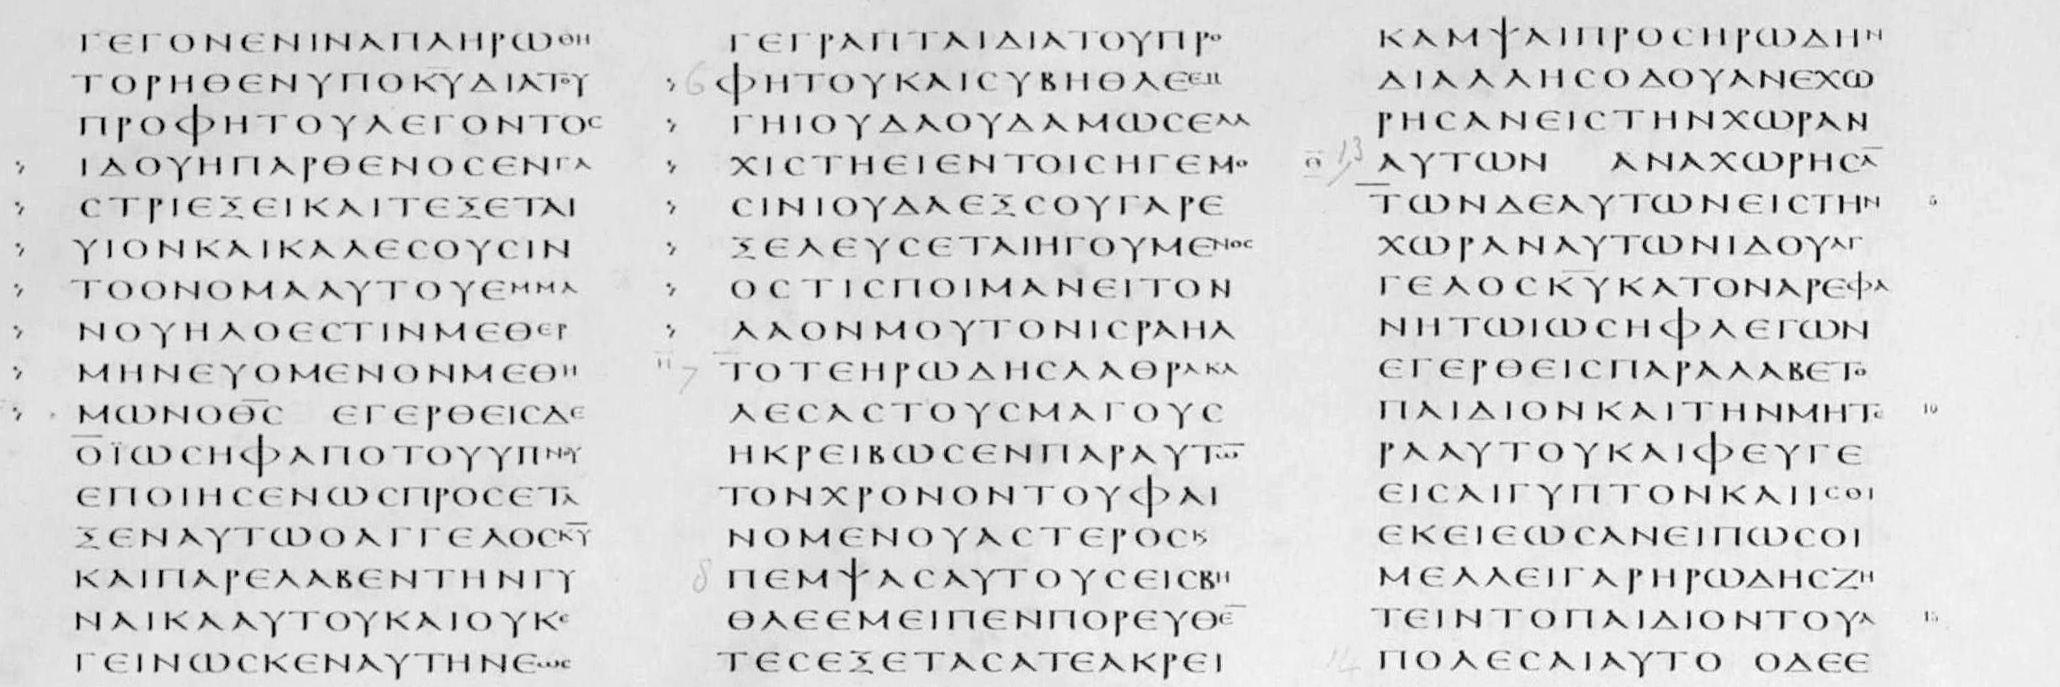 ΓΕΓΟΝΕΝΙΝΑΠΛΗΡΩΘΗ
ΤΟΡΗΘΕΝΥΠΟΚ̅Υ̅ΔΙΑΤΟΥ
ΠΡΟΦΗΤΟΥΛΕΓΟΝΤΟC
ΙΔΟΥΗΠΑΡΘΕΝΟCΕΝΓΑ
CΤΡΙΕΞΕΙΚΑΙΤΕΞΕΤΑΙ
ΥΙΟΝΚΑΙΚΑΛΕCΟΥCΙΝ
ΤΟΟΝΟΜΑΑΥΤΟΥΕΜΜΑ
ΝΟΥΗΛΟΕCΤΙΝΜΕΘΕΡ
ΜΗΝΕΥΟΜΕΝΟΝΜΕΘΗ
ΜΩΝΟΘ̅C̅ ΕΓΕΡΘΕΙCΔΕ
ΟΪΩCΗΦΑΠΟΤΟΥΥΠΝΟΥ
ΕΠΟΙΗCΕΝΩCΠΡΟCΕΤΑ
ΞΕΝΑΥΤΩΟΑΓΓΕΛΟCΚ̅Υ̅
ΚΑΙΠΑΡΕΛΑΒΕΝΤΗΝΓΥ
ΝΑΙΚΑΑΥΤΟΥΚΑΙΟΥΚΕ
ΓΕΙΝΩCΚΕΝΑΥΤΗΝΕΩC
ΓΕΓΡΑΠΤΑΙΔΙΑΤΟΥΠΡΟ
6 ΦΗΤΟΥΚΑΙCΥΒΗΘΛΕΕΜ
ΓΗΙΟΥΔΑΟΥΔΑΜΩCΕΛΑ
ΧΙCΤΗΕΙΕΝΤΟΙCΗΓΕΜΟ
CΙΝΙΟΥΔΑΕΞCΟΥΓΑΡΕ
ΞΕΛΕΥCΕΤΑΙΗΓΟΥΜΕΝΟC
ΟCΤΙCΠΟΙΜΑΝΕΙΤΟΝ
ΛΑΟΝΜΟΥΤΟΝΙCΡΑΗΛ
Η̅ 7 ΤΟΤΕΗΡΩΔΗCΛΑΘΡΑΚΑ
ΛΕCΑCΤΟΥCΜΑΓΟΥC
ΗΚΡΕΙΒΩCΕΝΠΑΡΑΥΤΩ̅
ΤΟΝΧΡΟΝΟΝΤΟΥΦΑΙ
ΝΟΜΕΝΟΥΑCΤΕΡΟCϗ
8 ΠΕΜΨΑCΑΥΤΟΥCΕΙCΒΗ
ΘΛΕΕΜΕΙΠΕΝΠΟΡΕΥΘΕ̅
ΤΕCΕΞΕΤΑCΑΤΕΑΚΡΕΙ
ΚΑΜΨΑΙΠΡΟCΗΡΩΔΗΝ
ΔΙΑΛΛΗCΟΔΟΥΑΝΕΧΩ
ΡΗCΑΝΕΙCΤΗΝΧΩΡΑΝ
Θ̅ 13 ΑΥΤΩΝ ΑΝΑΧΩΡΗCΑ̅
ΤΩΝΔΕΑΥΤΩΝΕΙCΤΗΝ 5
ΧΩΡΑΝΑΥΤΩΝΙΔΟΥΑΓ
ΓΕΛΟCΚ̅Υ̅ΚΑΤΟΝΑΡΕΦΑ
ΝΗΤΩΙΩCΗΦΛΕΓΩΝ
ΕΓΕΡΘΕΙCΠΑΡΑΛΑΒΕΤΟ
ΠΑΙΔΙΟΝΚΑΙΤΗΝΜΗΤΕ 10
ΡΑΑΥΤΟΥΚΑΙΦΕΥΓΕ
ΕΙCΑΙΓΥΠΤΟΝΚΑΙΙCΟΙ
ΕΚΕΙΕΩCΑΝΕΙΠΩCΟΙ
ΜΕΛΛΕΙΓΑΡΗΡΩΔΗCΖΗ
ΤΕΙΝΤΟΠΑΙΔΙΟΝΤΟΥΑ 15
14 ΠΟΛΕCΑΙΑΥΤΟ ΟΔΕΕ